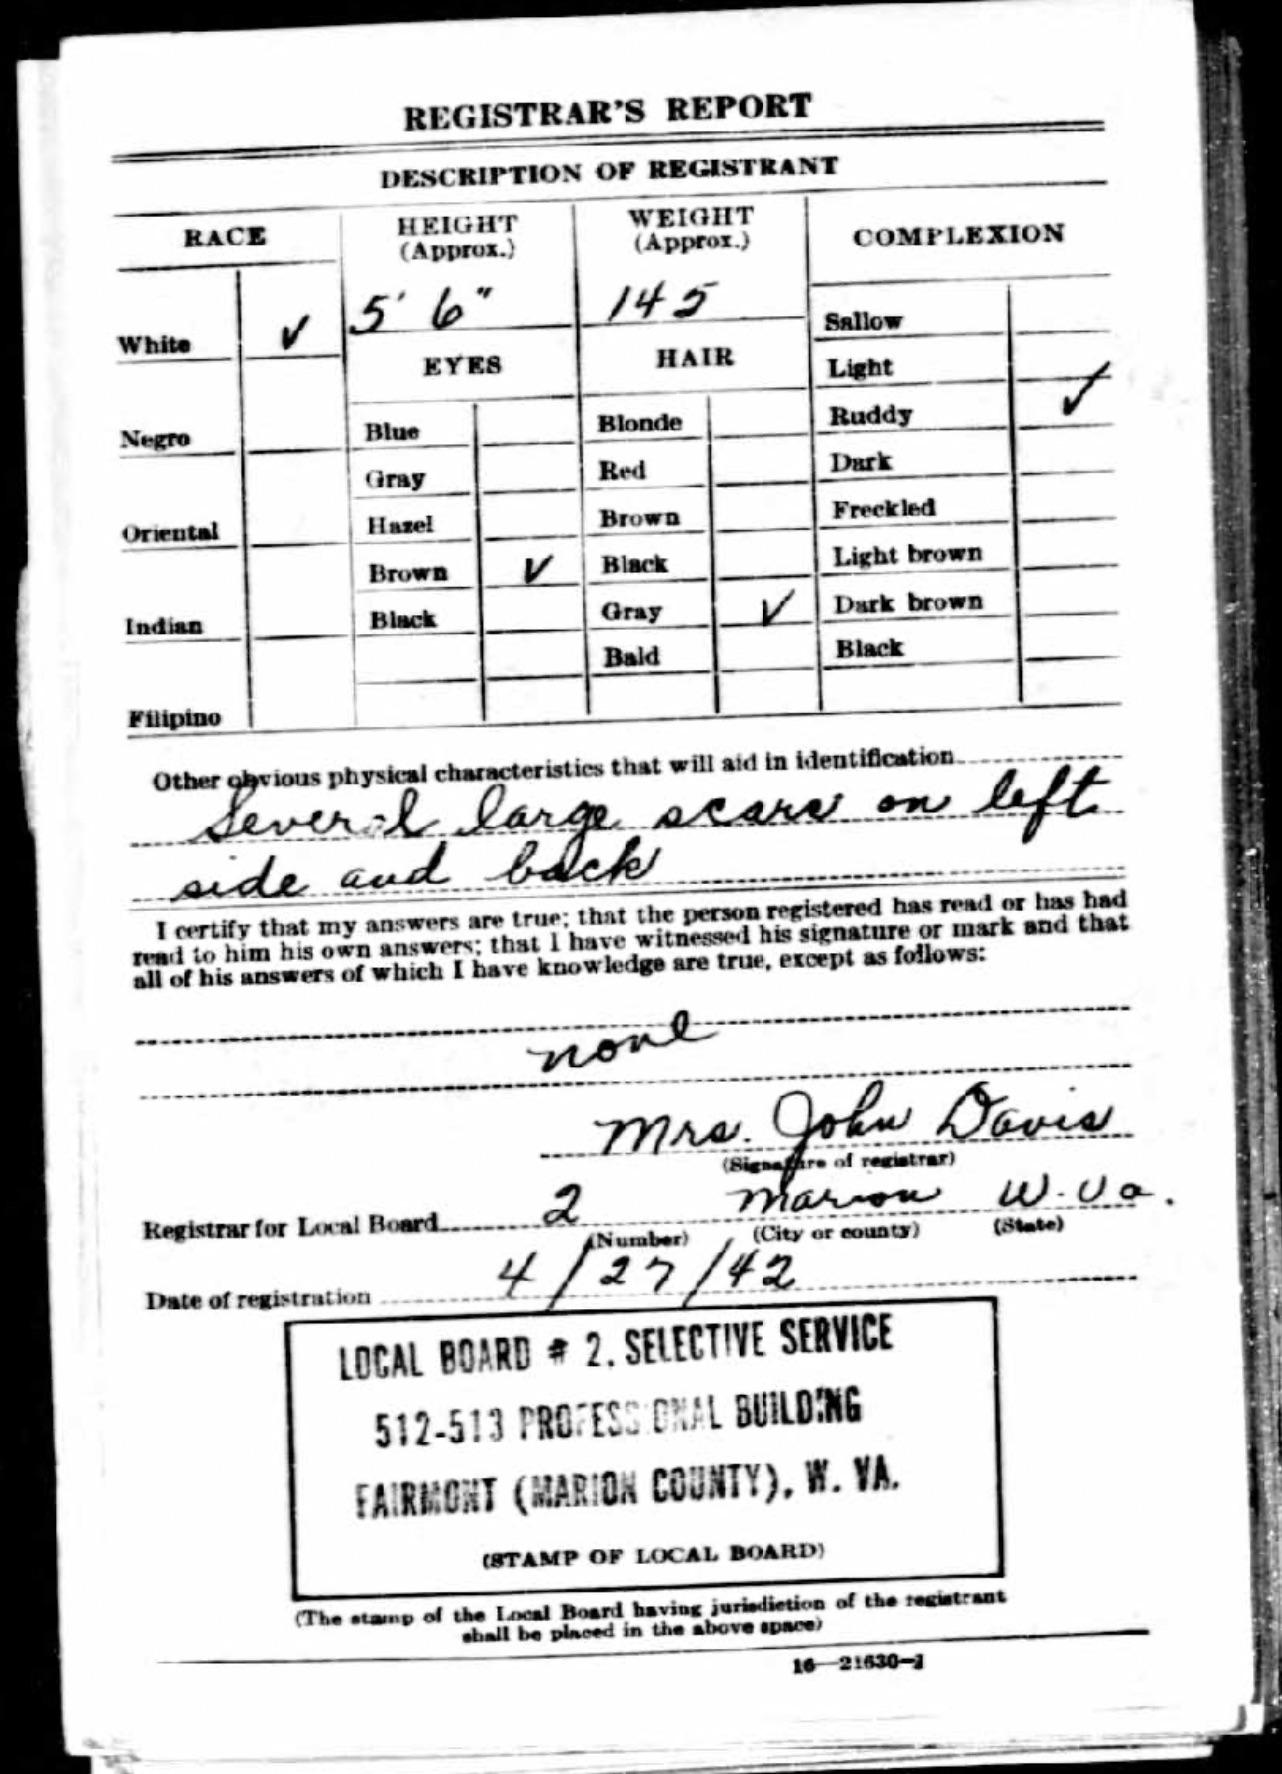 REGISTRAR'S REPORT
DESCRIPTION OF REGISTRANT
RACE
HEIGHT
(Approx.)
WEIGHT
(Approx.)
COMPLEXION
White ✓
5' 6"
145
Sallow
EYES
HAIR
Light
Negro
Blue
Blonde
Ruddy ✓
Gray
Red
Dark
Oriental
Hazel
Brown
Freckled
Brown ✓
Black
Light brown
Indian
Black
Gray ✓
Dark brown
Bald
Black
Filipino
Other obvious physical characteristics that will aid in identification
Several large scars on left
side and back
I certify that my answers are true; that the person registered has read or has had
read to him his own answers; that I have witnessed his signature or mark and that
all of his answers of which I have knowledge are true, except as follows:
none
Mrs. John Davis
(Signature of registrar)
Registrar for Local Board 2 Marion W. Va.
(Number) (City or county) (State)
Date of registration 4/27/42
LOCAL BOARD # 2. SELECTIVE SERVICE
512-513 PROFESSIONAL BUILDING
FAIRMONT (MARION COUNTY), W. VA.
(STAMP OF LOCAL BOARD)
(The stamp of the Local Board having jurisdiction of the registrant
shall be placed in the above space)
16—21630-1